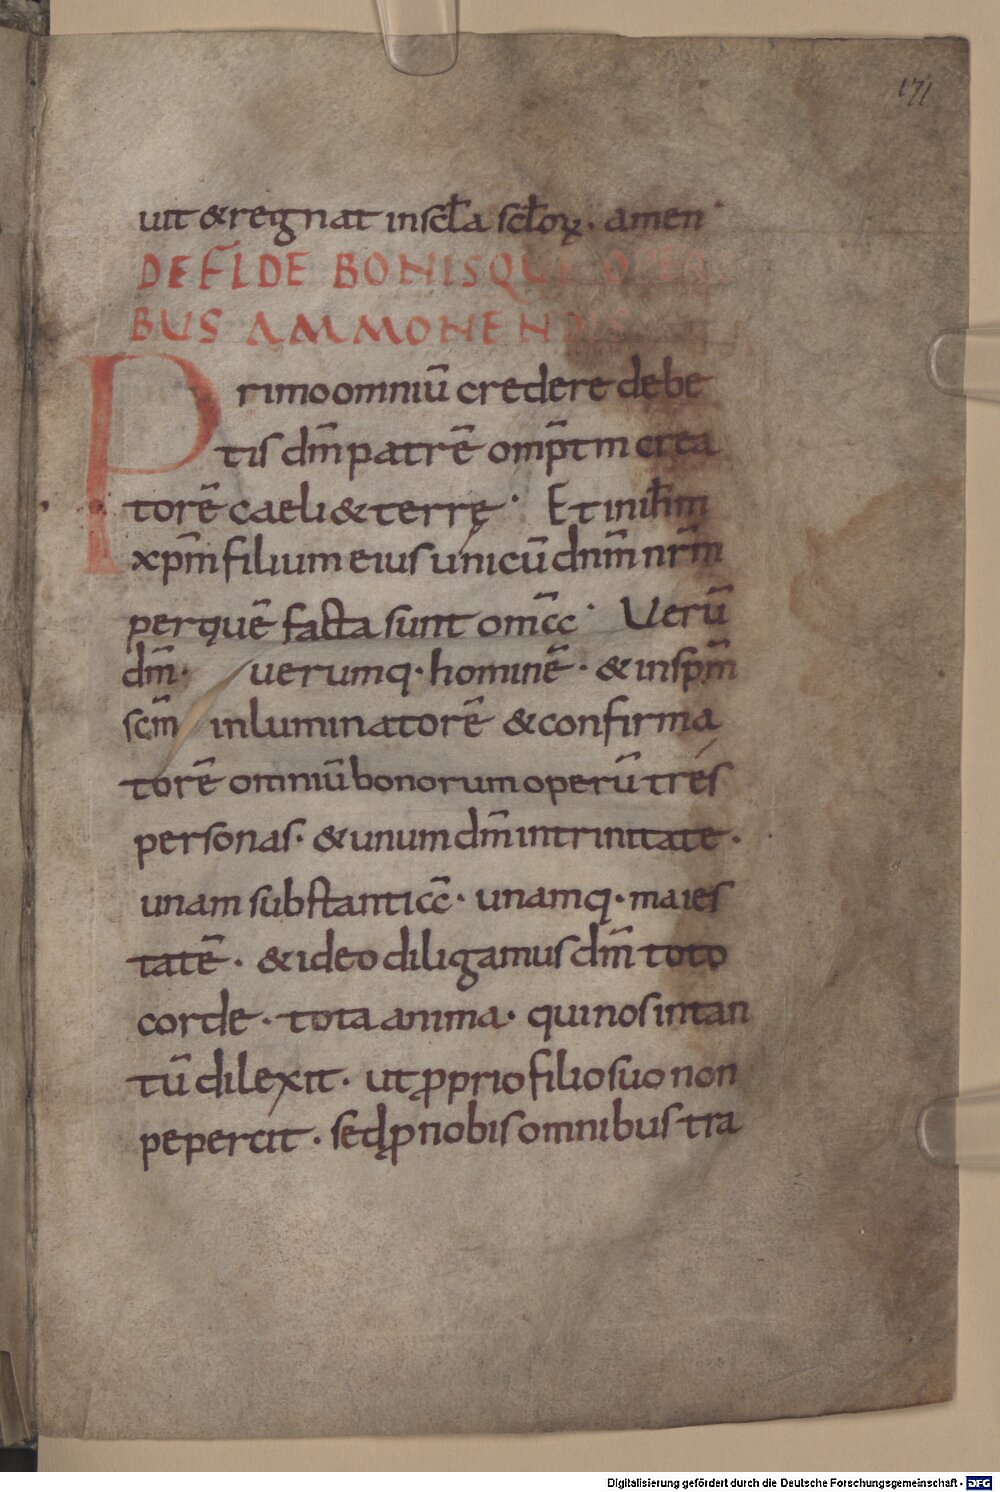 171
uit & regnat in scl̄a scl̄oꝝ · amen ·
DE FĪDE BONISQUE OPERI
BUS AMMONENDIS
Primo omniū credere debe
tis dm̄ patrē omp̄tm crea
torē caeli & terrę · Et in ih̄m
xp̄m filium eius unicū dnm̄ nr̄m
per quē facta sunt om̄cc · Uerū
dm̄ · uerumq · hominē · & in sp̄m
scm̄ inluminatorē & confirma
torē omniū bonorum operū tres
personas · & unum dm̄ in trinitate ·
unam substanticc̄ · unamq · maies
tatē · & ideo diligamus dm̄ toto
corde · tota anima · qui nos in tan
tū dilexit · ut ꝓprio filio suo non
pepercit · sed ꝓ nobis omnibus tra
Digitalisierung gefördert durch die Deutsche Forschungsgemeinschaft - DFG